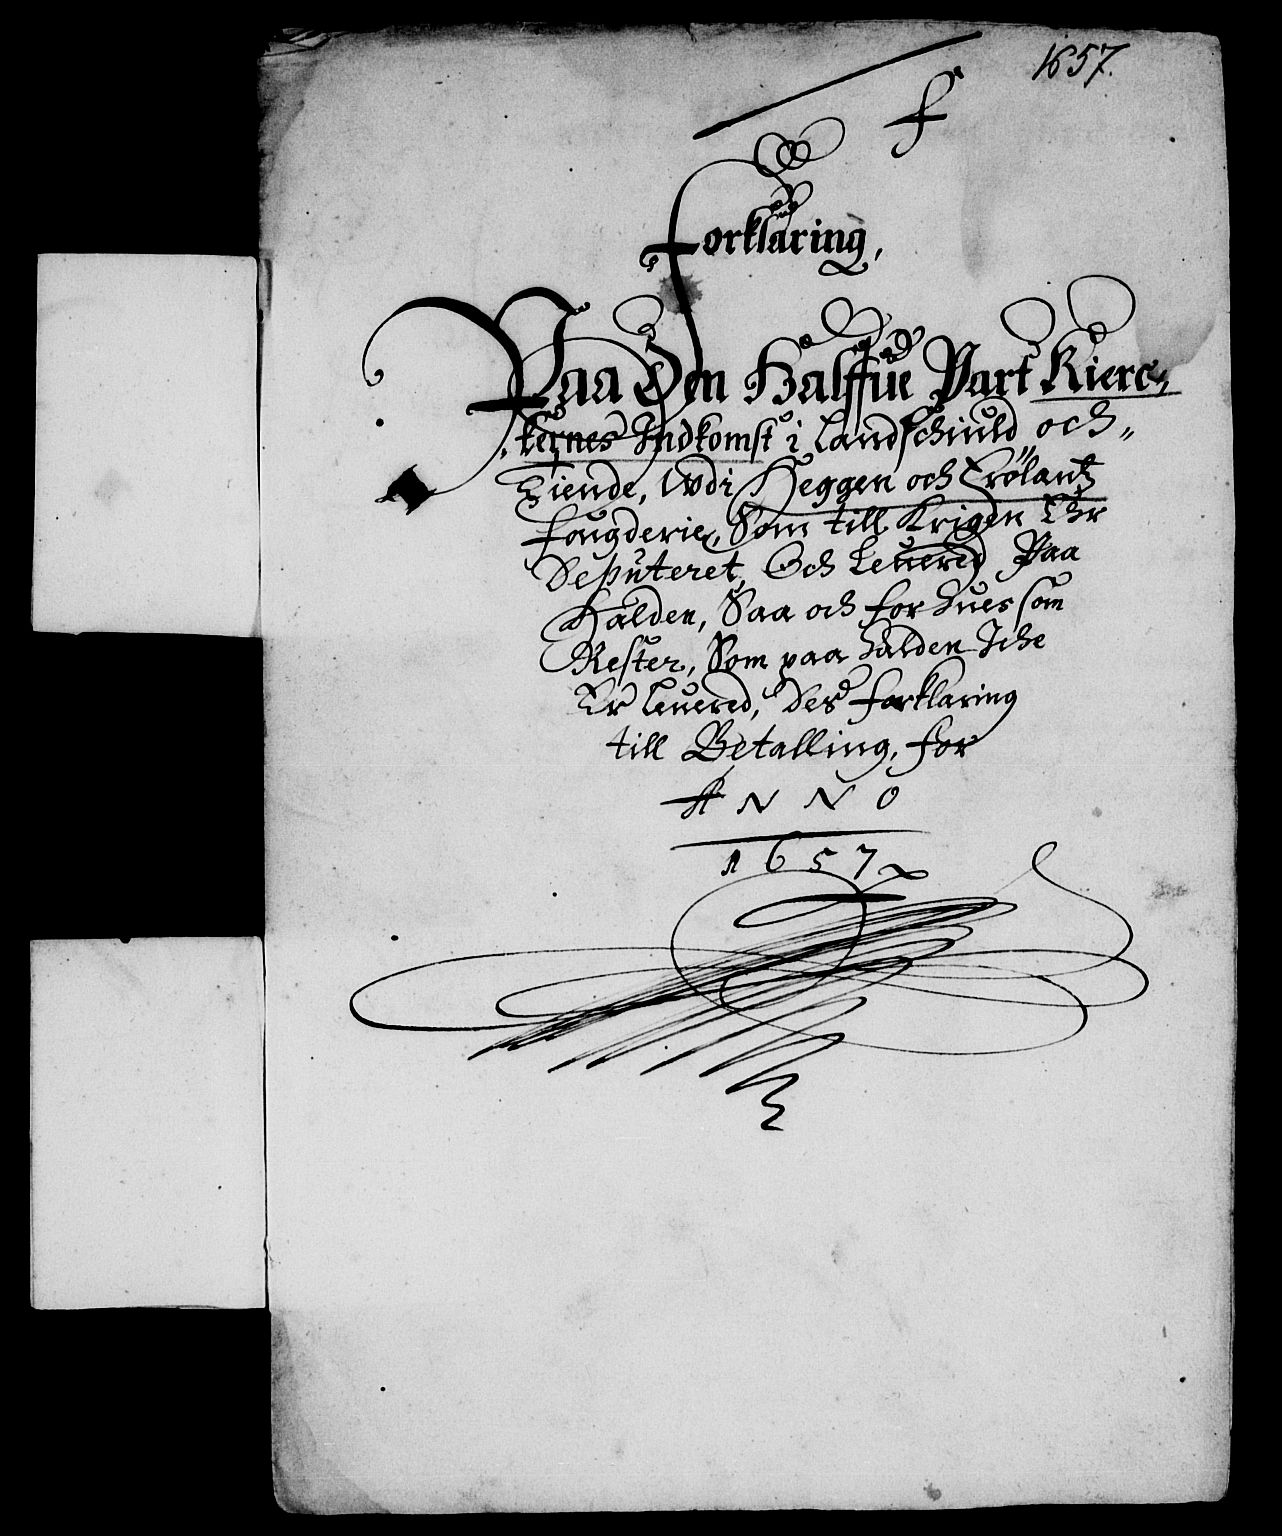 1657.
F
Forklaring,
Paa Den Halffue Part Kierc,
kernes Indkomst i Landschiuld och
Tiende, Udi Heggen och Frölantz
Fougderie, Som till Krigen Ehr
Deputeret, Och Leuered Paa
Halden, Saa och for hues som
Rester, Som paa halden Iche
Er leuered, des forklaring
till Betalling, for
ANNO
1657